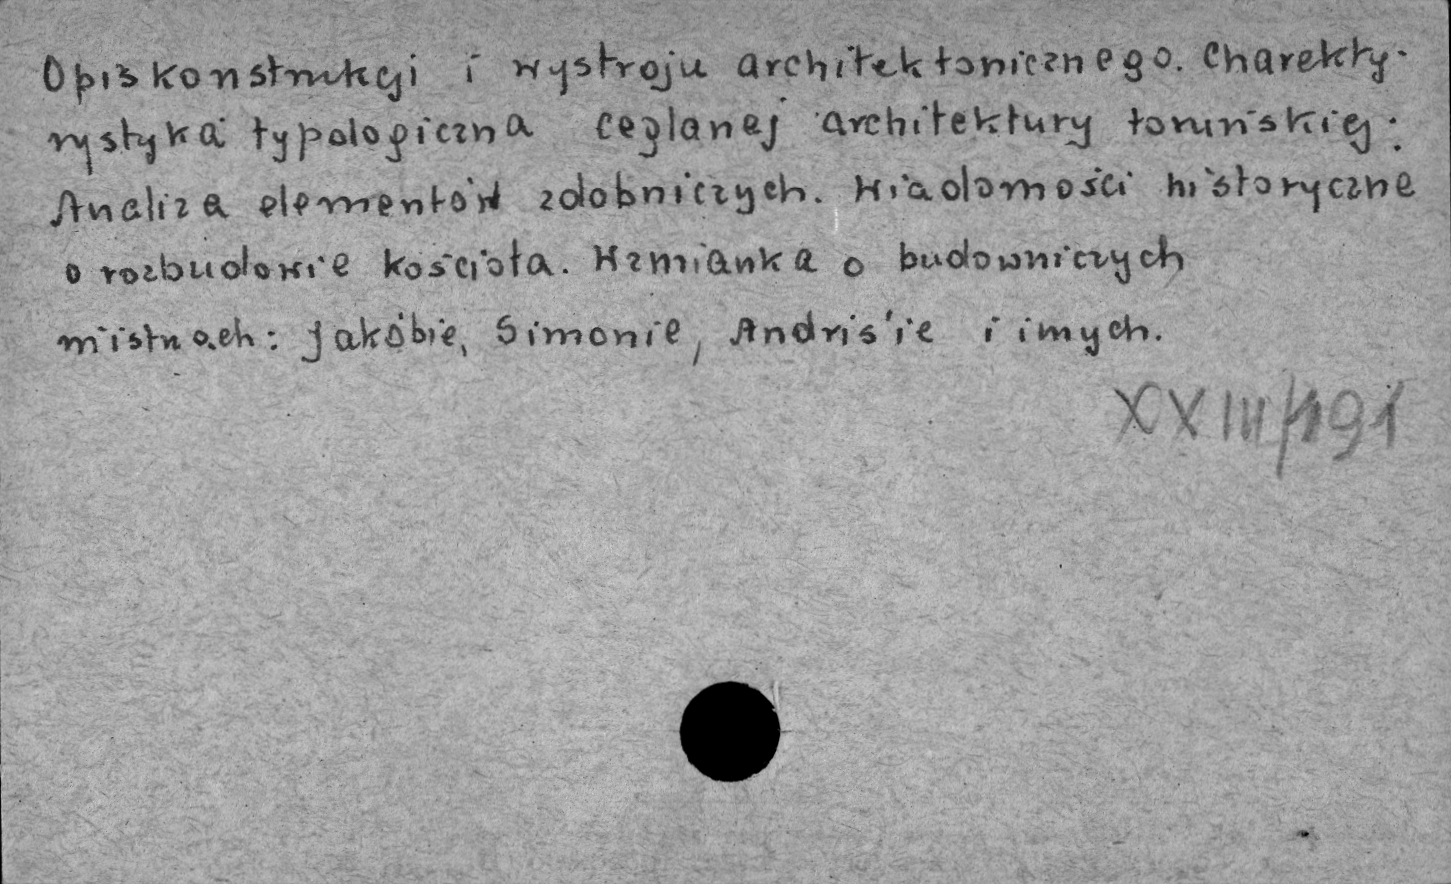 Opis konstrukcji i wystroju architektonicznego. Charekty-
rystyka typologiczna ceglanej architektury toruńskiej.
Analiza elementów zdobniczych. Wiadomości historyczne
o rozbudowie kościoła. Wzmianka o budowniczych
mistrzach: Jakóbie, Simonie, Andris'ie i innych.
XXIII/191